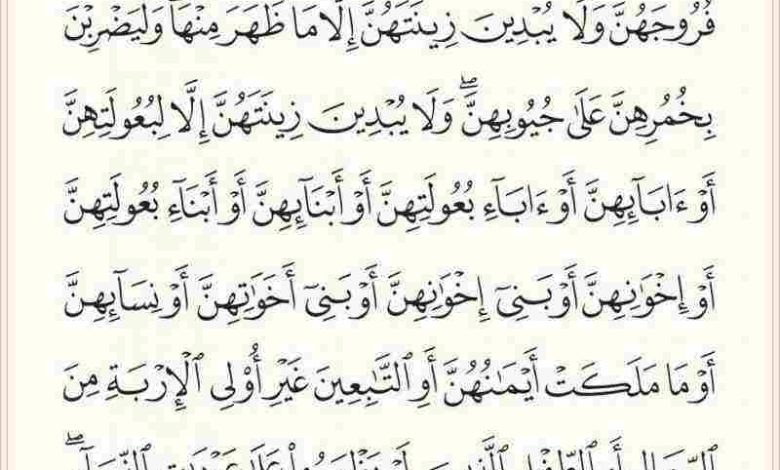 فُرُوجَهُنَّ وَلَا يُبْدِينَ زِينَتَهُنَّ إِلَّا مَا ظَهَرَ مِنْهَا ۖ وَلْيَضْرِبْنَ
بِخُمُرِهِنَّ عَلَىٰ جُيُوبِهِنَّ ۖ وَلَا يُبْدِينَ زِينَتَهُنَّ إِلَّا لِبُعُولَتِهِنَّ
أَوْ ءَابَآئِهِنَّ أَوْ ءَابَآءِ بُعُولَتِهِنَّ أَوْ أَبْنَآئِهِنَّ أَوْ أَبْنَآءِ بُعُولَتِهِنَّ
أَوْ إِخْوَٰنِهِنَّ أَوْ بَنِىٓ إِخْوَٰنِهِنَّ أَوْ بَنِىٓ أَخَوَٰتِهِنَّ أَوْ نِسَآئِهِنَّ
أَوْ مَا مَلَكَتْ أَيْمَٰنُهُنَّ أَوِ ٱلتَّٰبِعِينَ غَيْرِ أُو۟لِى ٱلْإِرْبَةِ مِنَ